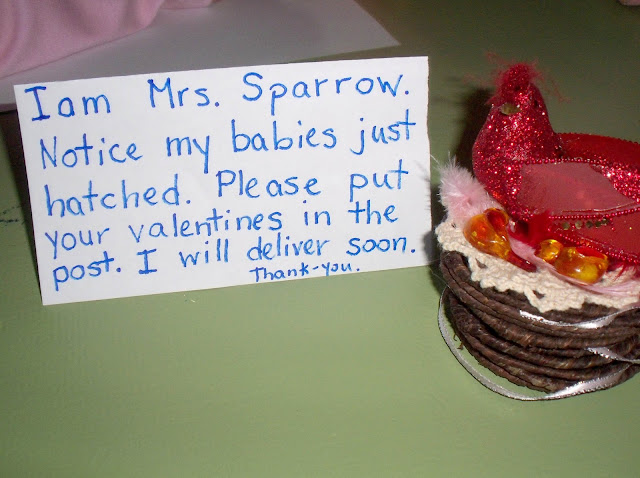 I am Mrs. Sparrow.
Notice my babies just
hatched. Please put
your valentines in the
post. I will deliver soon.
Thank-you.